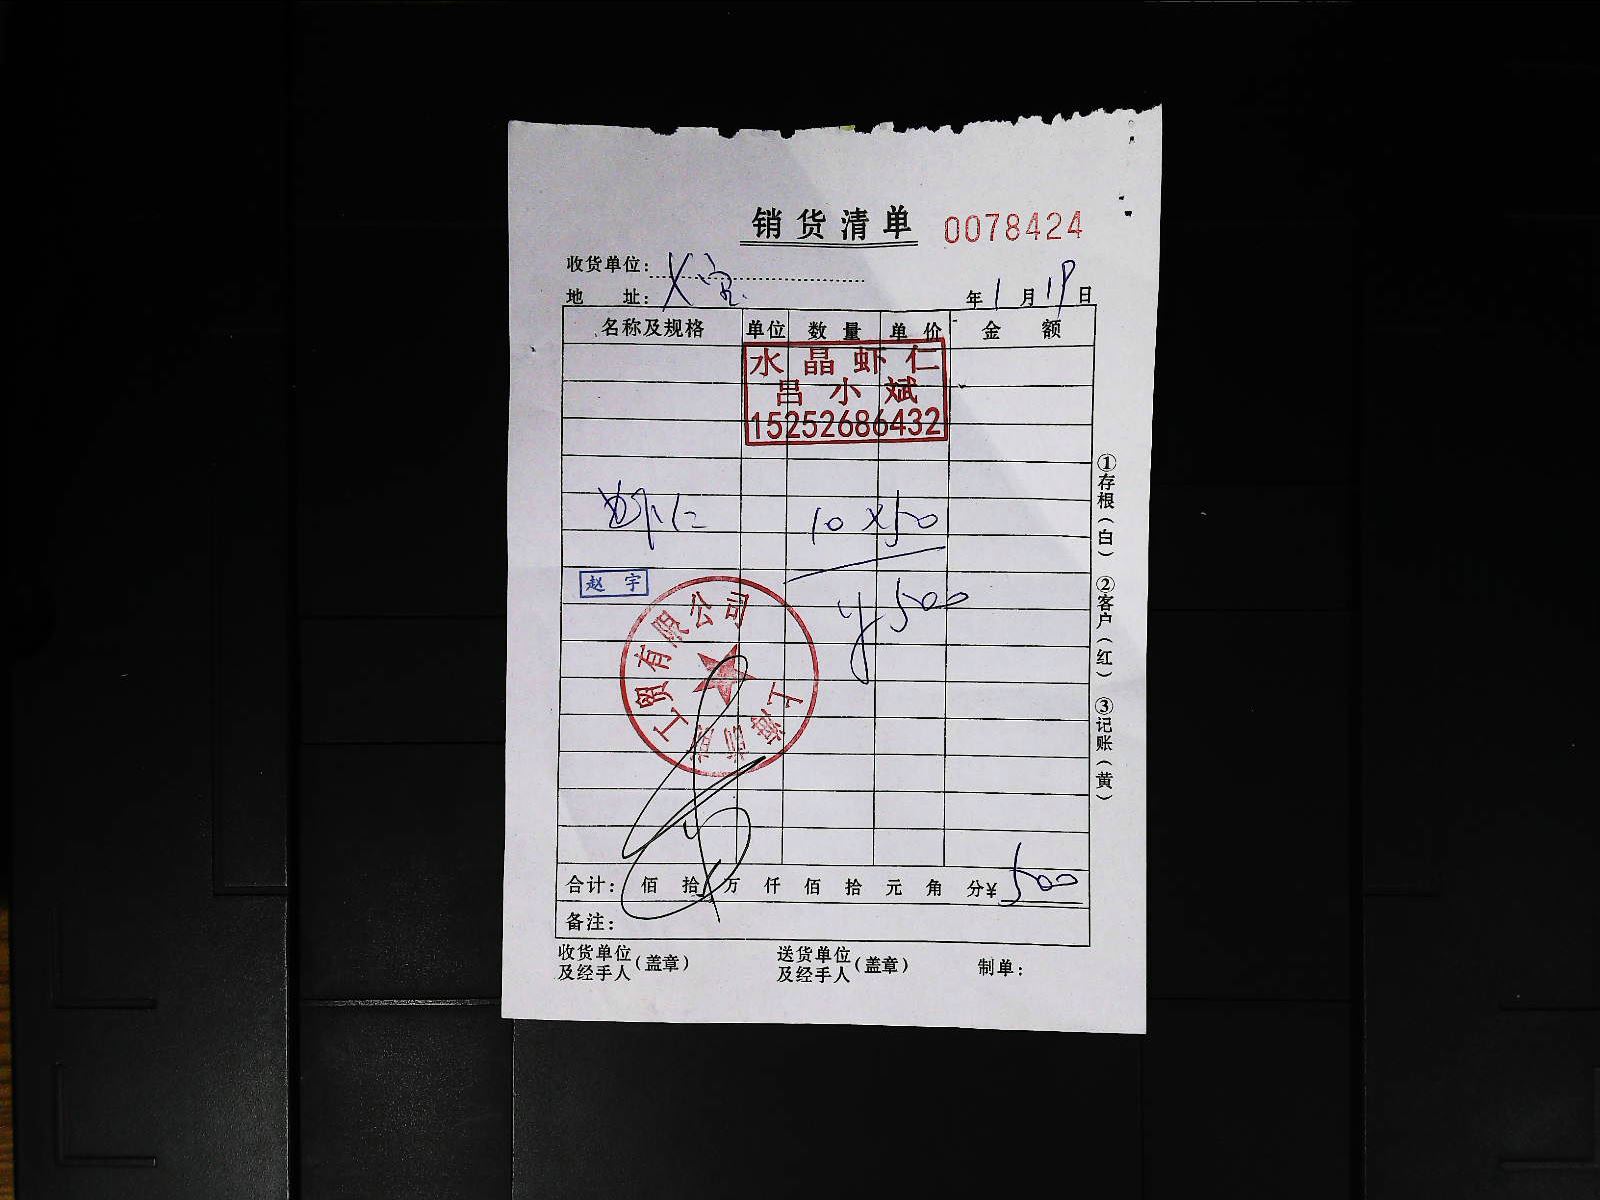 销货清单 0078424
收货单位：
地 址：
年1月19日
名称及规格 单位 数量 单价 金额
水晶虾仁
吕小斌
15252686432
虾仁 10×50
赵宇
¥500
工贸有限公司
上海
合计： 佰 拾 万 仟 佰 拾 元 角 分¥500
备注：
收货单位及经手人（盖章）
送货单位及经手人（盖章）
制单：
①存根（白） ②客户（红） ③记账（黄）